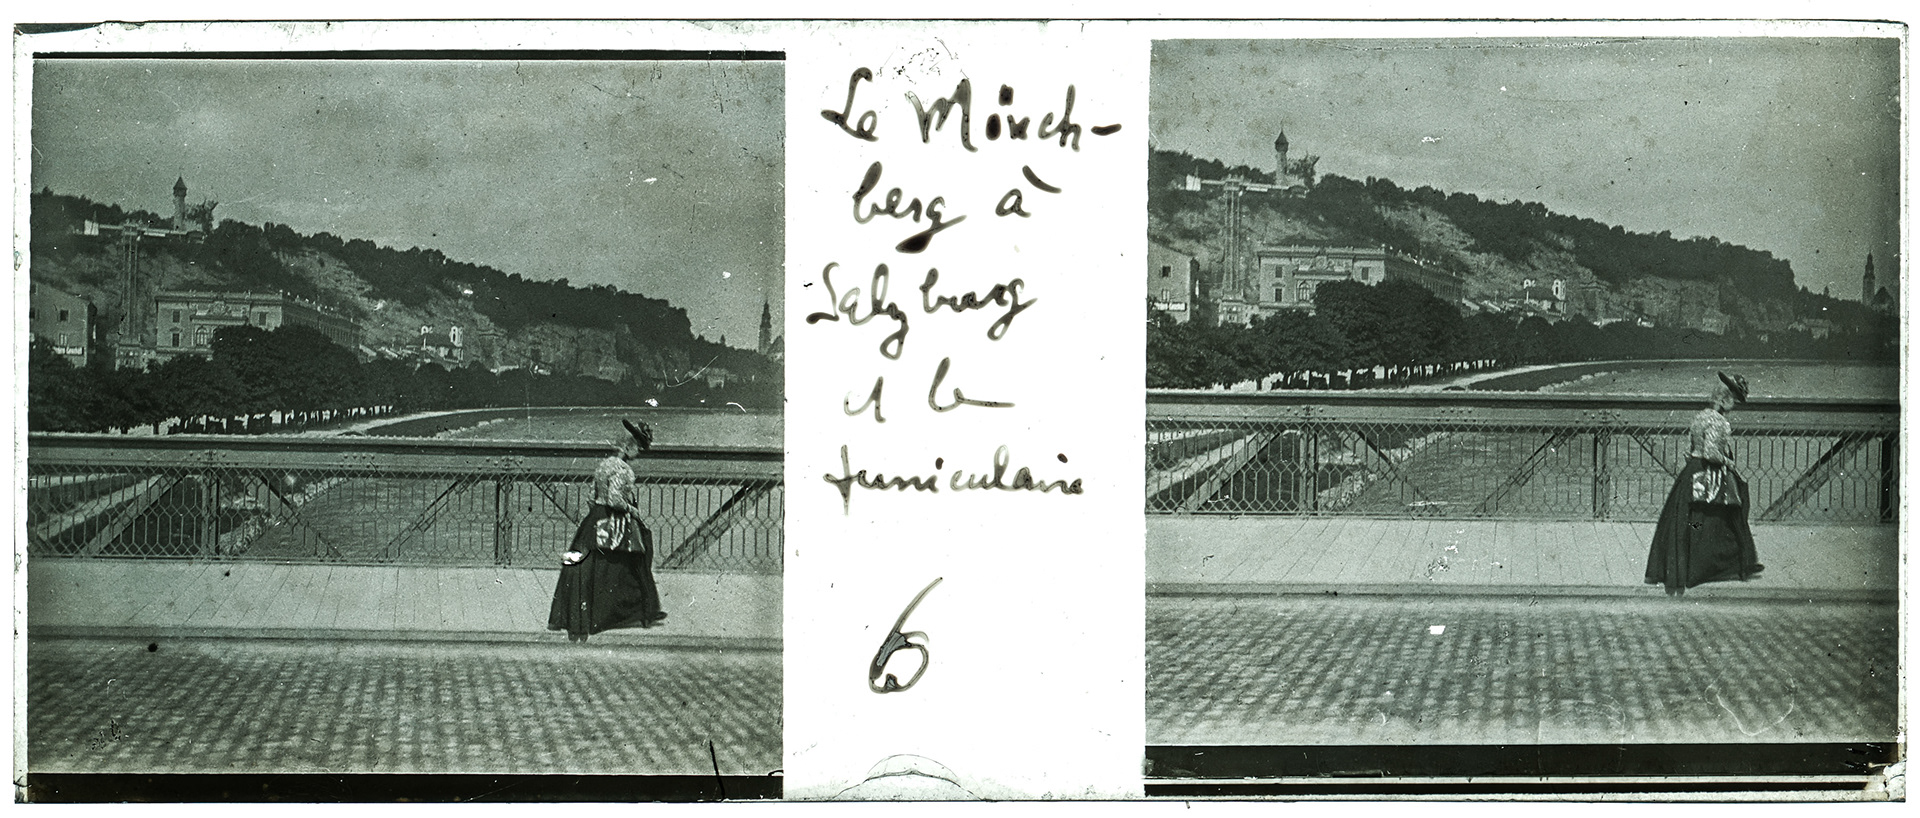 Le Mönch-
berg à
Salzburg
et le
funiculaire
6